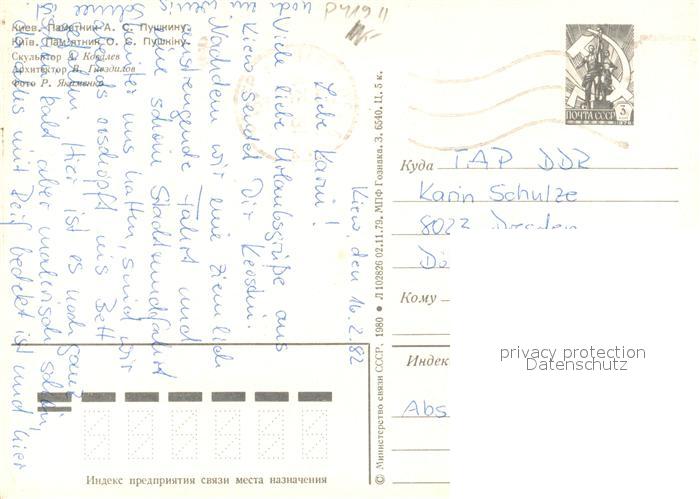 P41911
Киев. Памятник А. С. Пушкину.
Київ. Пам'ятник О. С. Пушкіну.
Скульптор А. Ковалев
Архитектор В. Гнездилов
Фото Р. Якименко
ПОЧТА СССР 3
Куда ГДР DDR
Karin Schulze
8027 Dresden
Кому
Индек
Abs
privacy protection
Datenschutz
© Министерство связи СССР. 1980 ● Л 102826 02.11.79. МПФ Гознака. З. 6540. Ц. 5 к.
Индекс предприятия связи места назначения
Kiew, den 16.2.82
Liebe Karin!
Viele liebe Urlaubsgrüße aus
Kiew sendet Dir Kerstin.
Nachdem wir eine ziemlich
anstrengende Fahrt und
eine schöne Stadtrundfahrt
hinter uns hatten, sind wir
erschöpft ins Bett
Hier ist es noch ganz
kalt aber malerisch schön,
da alles mit Reif bedeckt ist und hier